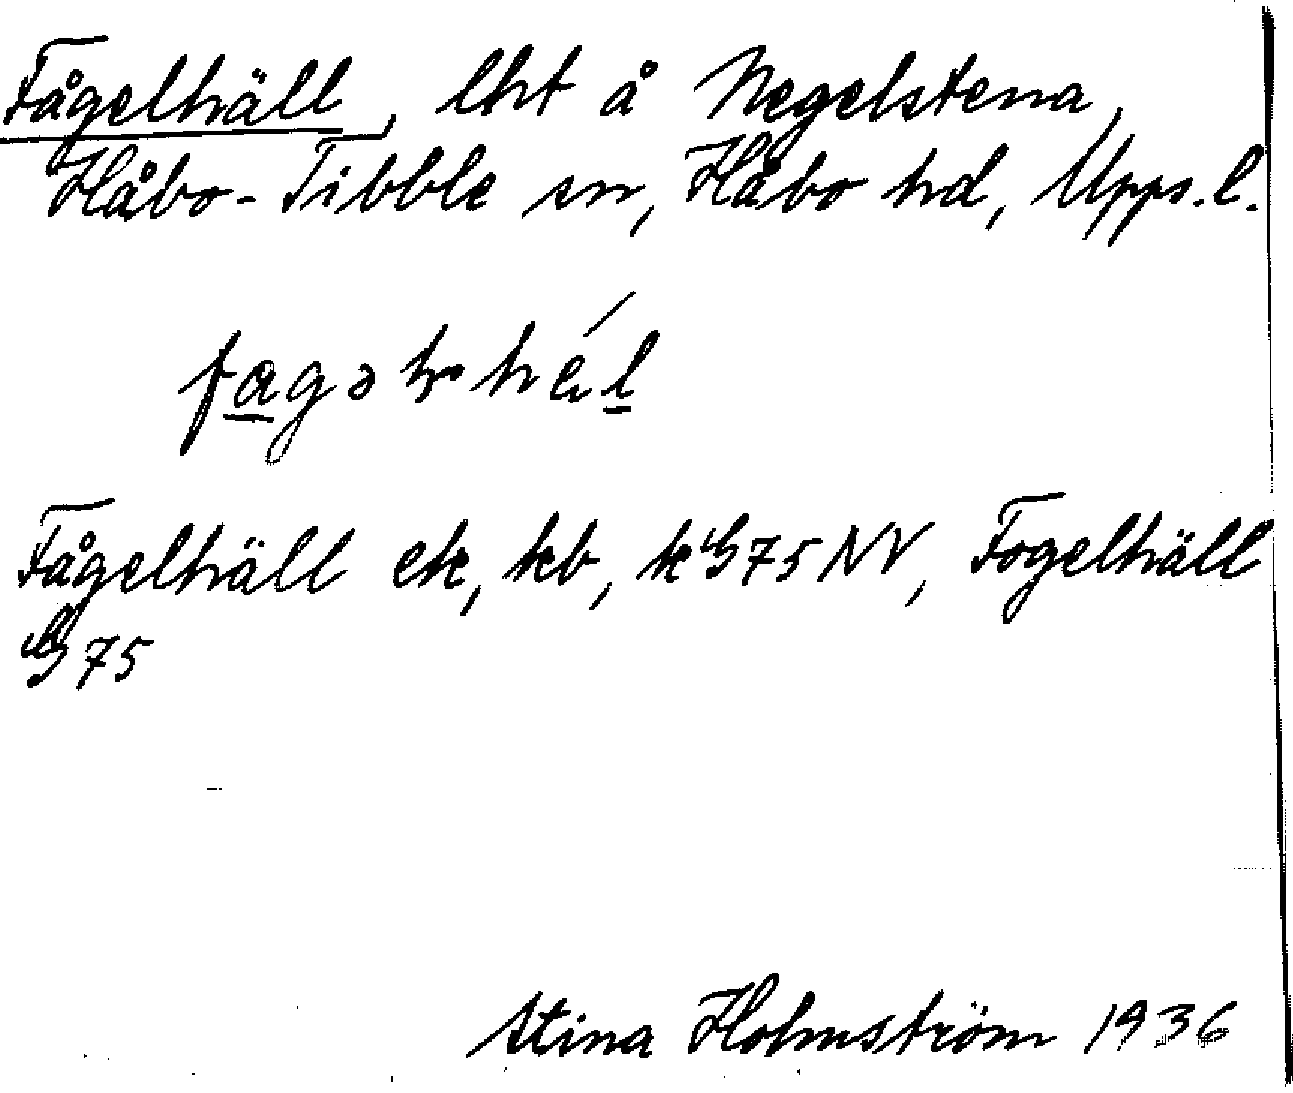 Fågelhäll, lht å Negelstena,
Håbo-Tibble sn, Håbo hd, Upps. l.
Fågelhäll ek, kb, k 75 NV, Fogelhäll
75
Stina Holmström 1936